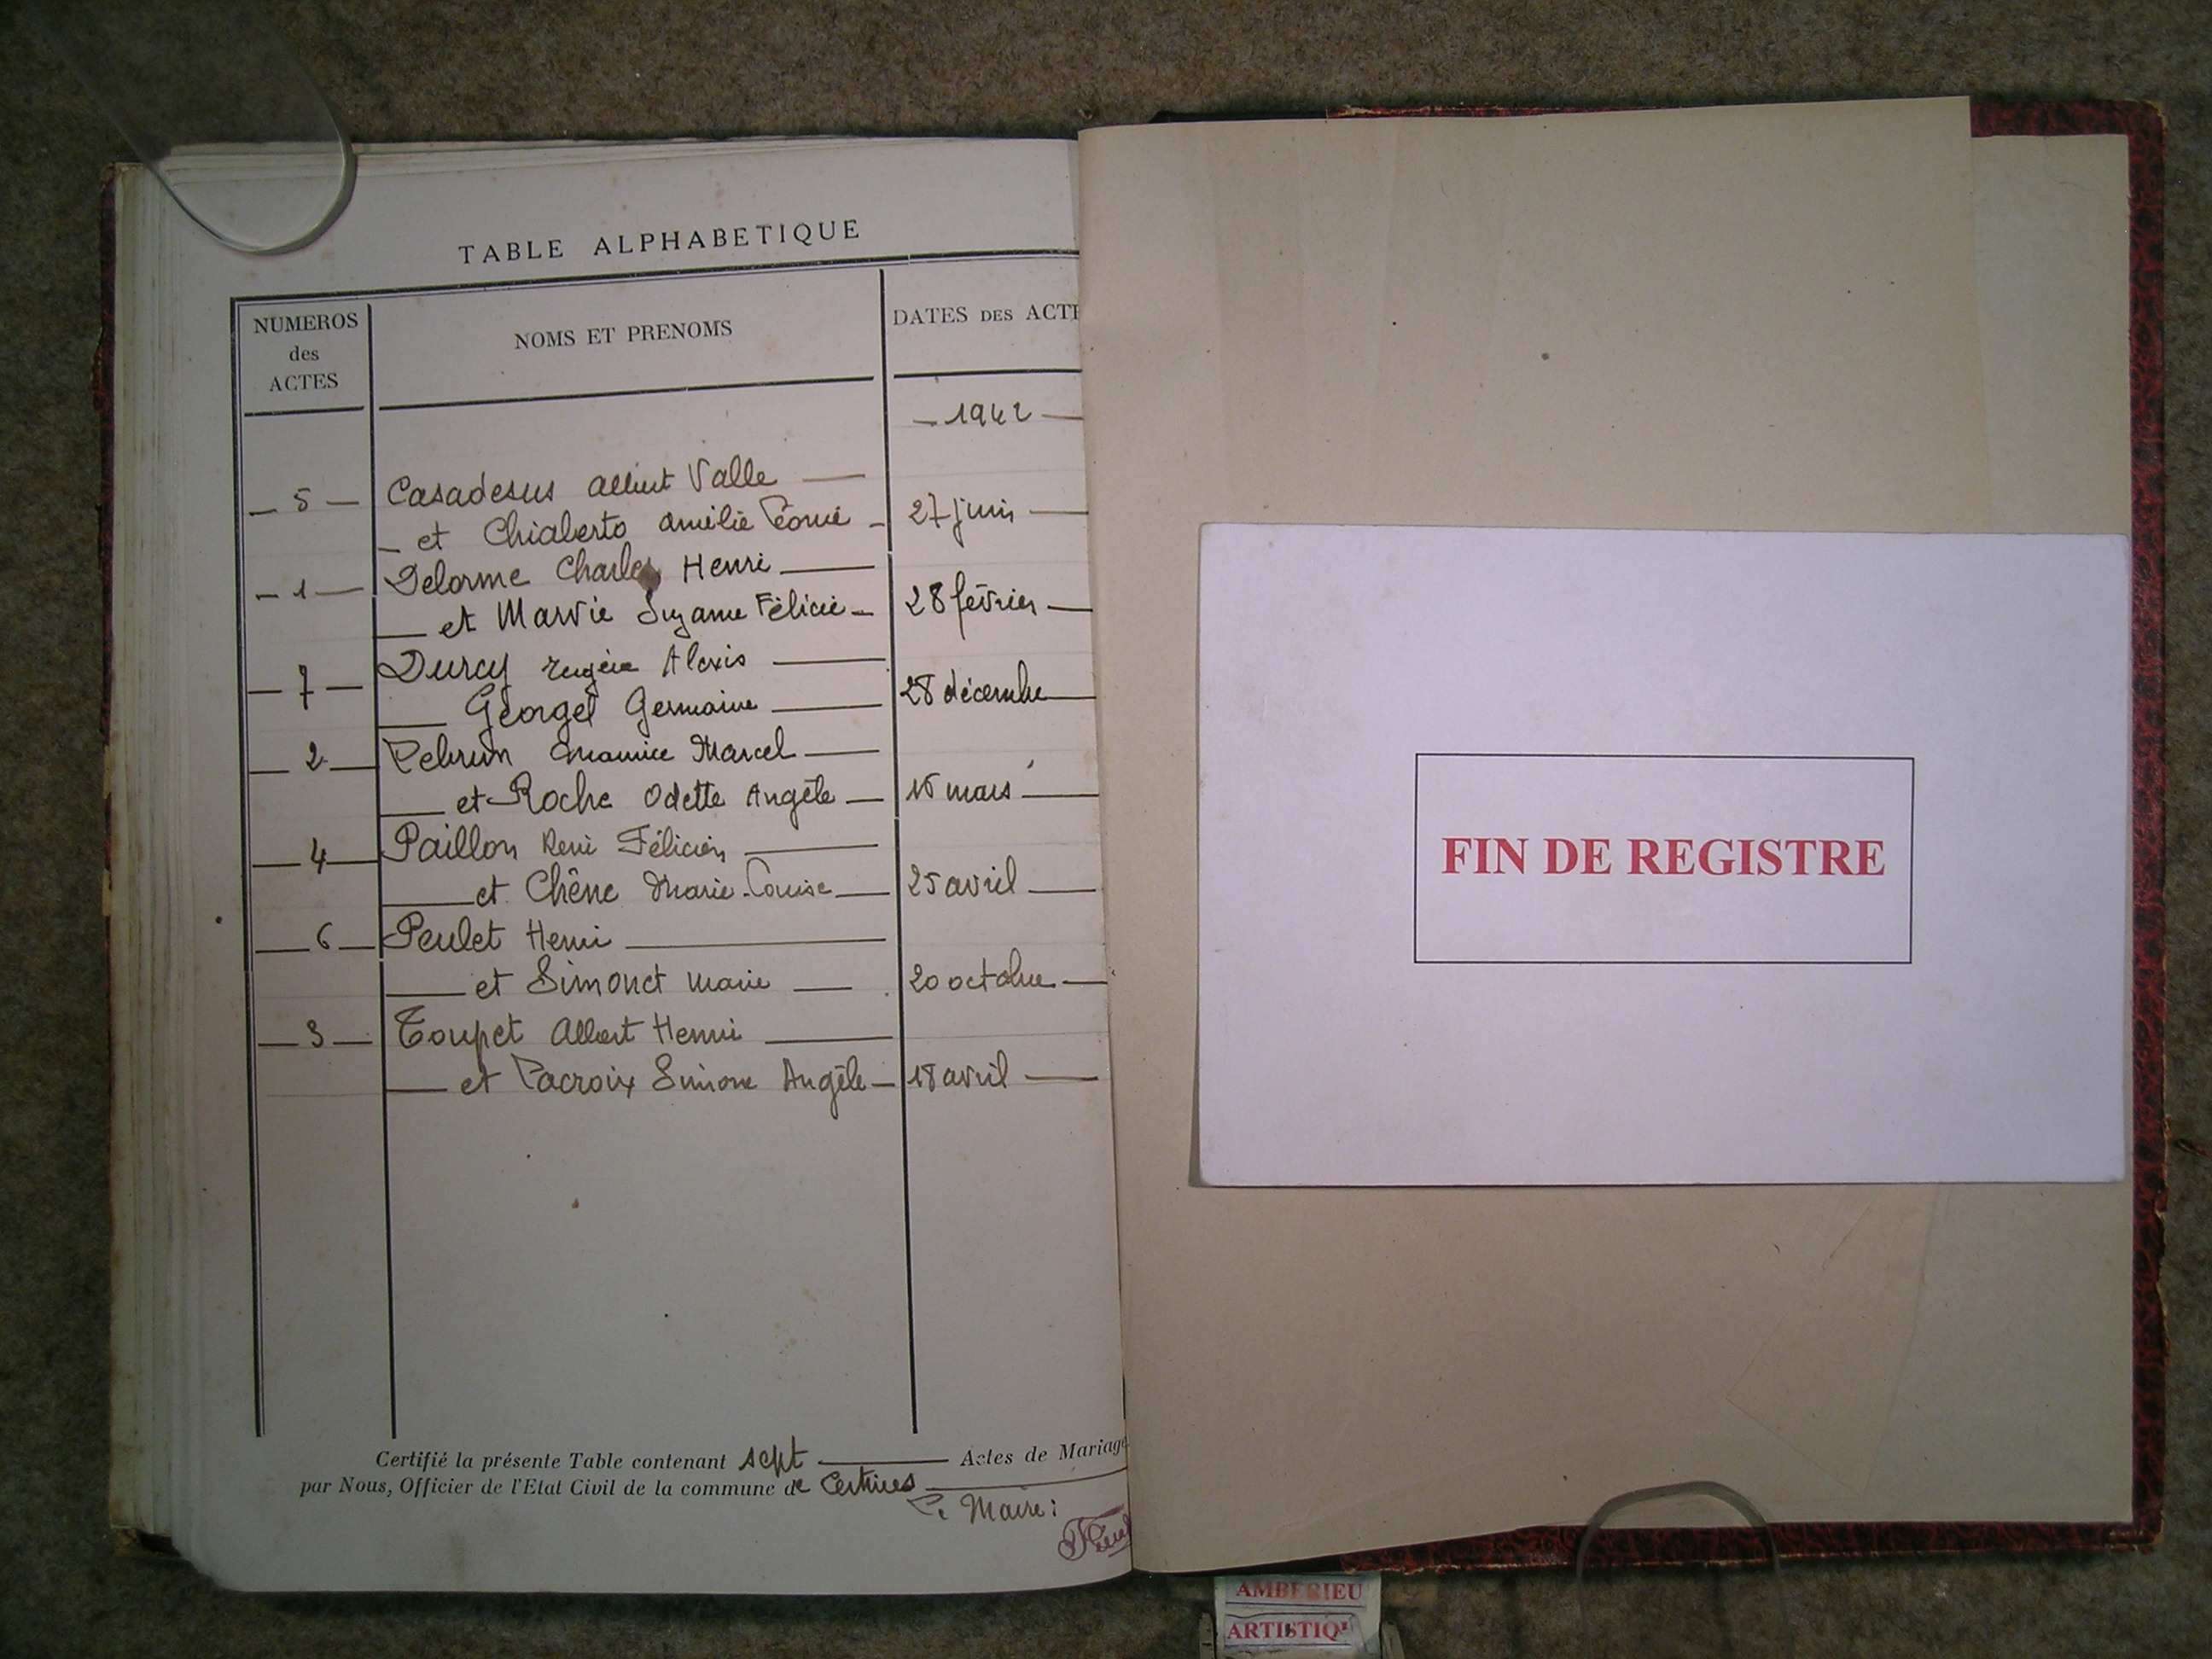 TABLE ALPHABETIQUE
NUMEROS
des
ACTES
NOMS ET PRENOMS
DATES DES ACTE
— 1942 —
— 5 — Casadesus Albert Valle —
— et Chiaberto Amélie Léonie — 27 juin —
— 1 — Delorme Charles Henri —
— et Marvie Suzanne Félicie — 28 février —
— 7 — Durcy Eugène Alexis —
— Georget Germaine — 28 décembre —
— 2 — Lebrun Maurice Marcel —
— et Roche Odette Angèle — 16 mars —
— 4 — Paillon René Félicien —
— et Chêne Marie-Louise — 25 avril —
— 6 — Peulet Henri —
— et Simonet Marie — 20 octobre —
— 3 — Toupet Albert Henri —
— et Lacroix Simone Angèle — 18 avril —
Certifié la présente Table contenant sept — Actes de Mariage
par Nous, Officier de l'Etat Civil de la commune de Certines —
Le Maire:
FIN DE REGISTRE
AMBERIEU
ARTISTIQU